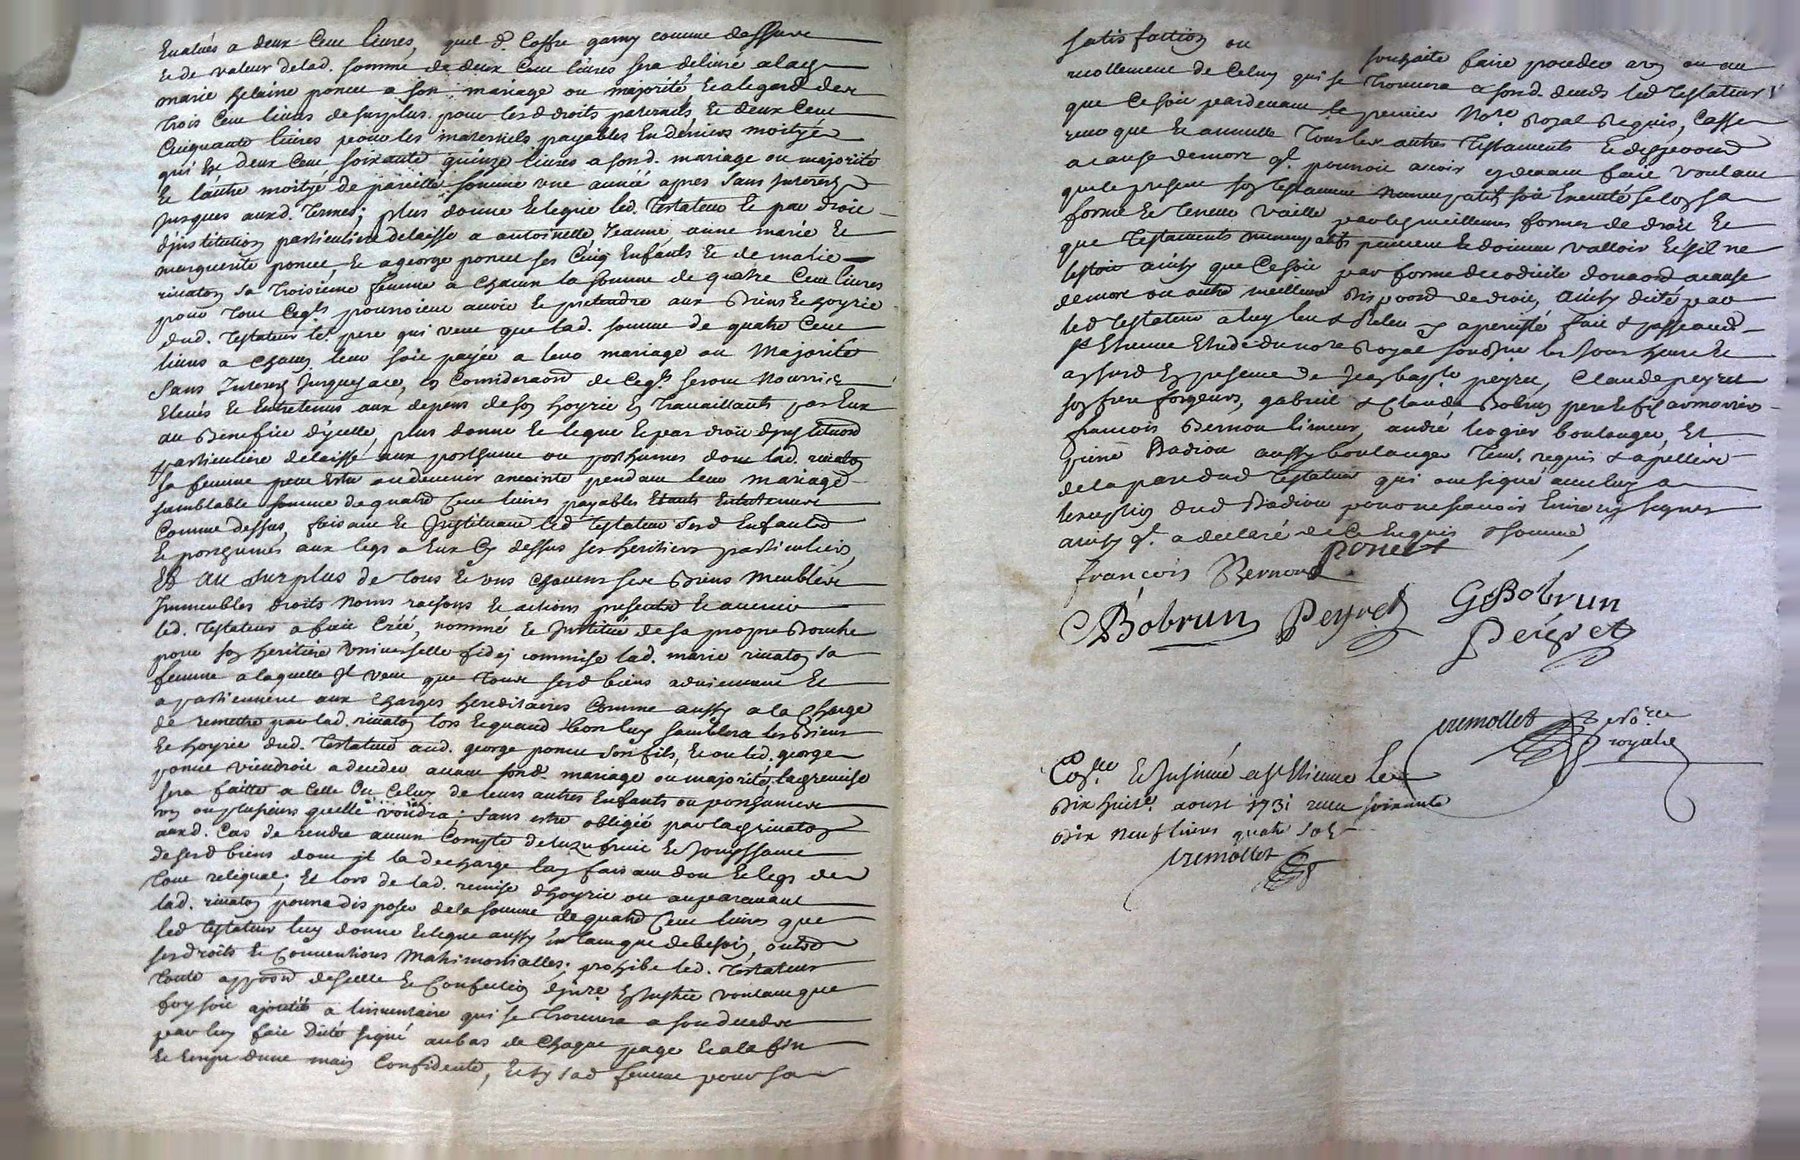 Evalués a deux Cent livres, quel d. Coffre garny comme dessus
Et de valeur delad. somme de deux Cent livres sera delivré alad.
marie helaine poncet a son mariage ou majorité Et alegard des
trois Cent livres de surplus pour lesd droits paternels Et deux Cent
Cinquante livres pour les maternels payables En deniers moitye
qui Est deux Cent soixante quinze livres a sond. mariage ou majorité
Et l'autre moitye de pareille somme une année apres sans Interests
Jusques auxd. termes; plus donne Et legue led. testateur Et par droit
d'institution particuliere delaisse a antoinette Jeanne anne marie Et
marguerite poncet, Et a george poncet ses Cinq Enfants Et de marie
rivaton sa troisieme femme a Chacun la somme de quatre Cent livres
pour tout Ceqls pourroient avoir Et pretendre aux Biens Et hoyrie
dud. testateur le pere qui veut que lad. somme de quatre Cent
livres a Chacun leur soit payée a leur mariage ou Majorité
sans Interests Jusquesace, En Consideraon de Ceqls seront Nourris
Elevés Et Entretenus aux depens de son hoyrie En travaillants par Eux
au Benefice d'ycelle, plus donne Et legue Et par droit d'Institution
particuliere delaisse aux posthume ou posthumes dont lad. rivaton
sa femme peut Estre ou devenir anceinte pendant leur mariage
semblable somme de quatre Cent livres payables
Comme dessus, faisant Et Instituant led testateur sesd Enfants
Et posthumes aux legs a Eux Cy dessus ses heritiers particuliers,
Et au surplus de tous Et uns Chacuns ses Biens Meubles
Immeubles droits Noms raisons Et actions presents Et avenir
led. testateur a fait Créé, nommé Et Institué de sa propre Bouche
pour son heritiere Universelle fidei commise lad. marie rivaton sa
femme a laquelle Il veut que tous sesd biens adviennent Et
apartiennent aux Charges hereditaires Comme aussy a la Charge
de remettre par lad. rivaton lors Et quand Bon luy semblera les Biens
Et hoyrie dud. testateur aud. george poncet son fils, Et ou led. george
poncet viendroit a deceder avant sond. mariage ou majorité, la remise
sera faitte a Celle Ou Celuy de leurs autres Enfants ou posthumes
un ou plusieurs quelle voudra; sans estre obligée par lad rivaton
auxd. Cas de rendre aucun Compte de l'uzufruit Et Jouyssance
de sesd biens dont il la decharge luy faisant don Et legs de
tout reliquat; Et lors de lad. remise d'hoyrie ou auparavant
lad. rivaton pourra disposer de la somme de quatre Cent livres que
led testateur luy donne Et legue aussy En tant que de besoin, outre
ses droits Et Conventions Matrimonialles; prohibe led. testateur
toute apposon de scelle Et Confection d'inre En Justice voulant que
foy soit ajoutée a linventaire qui se trouvera a son deceds
par luy fait Daté signé au bas de Chaque page Et a la fin
Et Ecript dune main Confidente, Et sy sad femme pour sa
satisfaction ou souhaite faire proceder a un ou au
recollement de Celuy qui se trouvera a sond. deceds led testateur veut
que Ce soit pardevant le premier Nore Royal Requis, Casse
revoque Et annulle tous les autres testaments Et disposons
a cause de mort ql pourroit avoir cy devant fait voulant
que le present son testament Nuncupatif soit Executé selon sa
forme Et teneur vaille par les meilleures formes de droit Et
que testaments nuncupatifs peuvent Et doivent valloir Et s'il ne
Estoit ainsy que Ce soit par forme de codicile donaon a cause
de mort ou autre meilleure dispoon de droit, ainsy dicté par
led testateur a luy leu & Releu & a persisté fait & passé aud
st Etienne Etude du nore Royal soussigné les Jour heure Et
an susd En presence de Jean bapte peyret, Claude peyret
son frere forgeurs, gabriel & Claude Bobrun pere et fils armuriers
francois Bernou limeur, andré leogier boulanger, Et
Badiou aussy boulanger tem. requis & apellés
de la part dud testateur qui ont signé avec luy a
lexception dud Badiou pour ne scavoir Ecrire ny signer
ainsy ql a declaré de Ce Enquis & sommé
poncet
françois Bernou
CBobrun Peyret GBobrun
Peyret
tremollet Nore
royal
Colle Et Insinué a St Etienne le
Dix huite aoust 1731 receu soixante
Dix Neuf livres quatre sols
tremollet